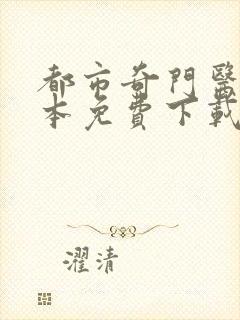 都市奇門醫
本免費下載
濯清